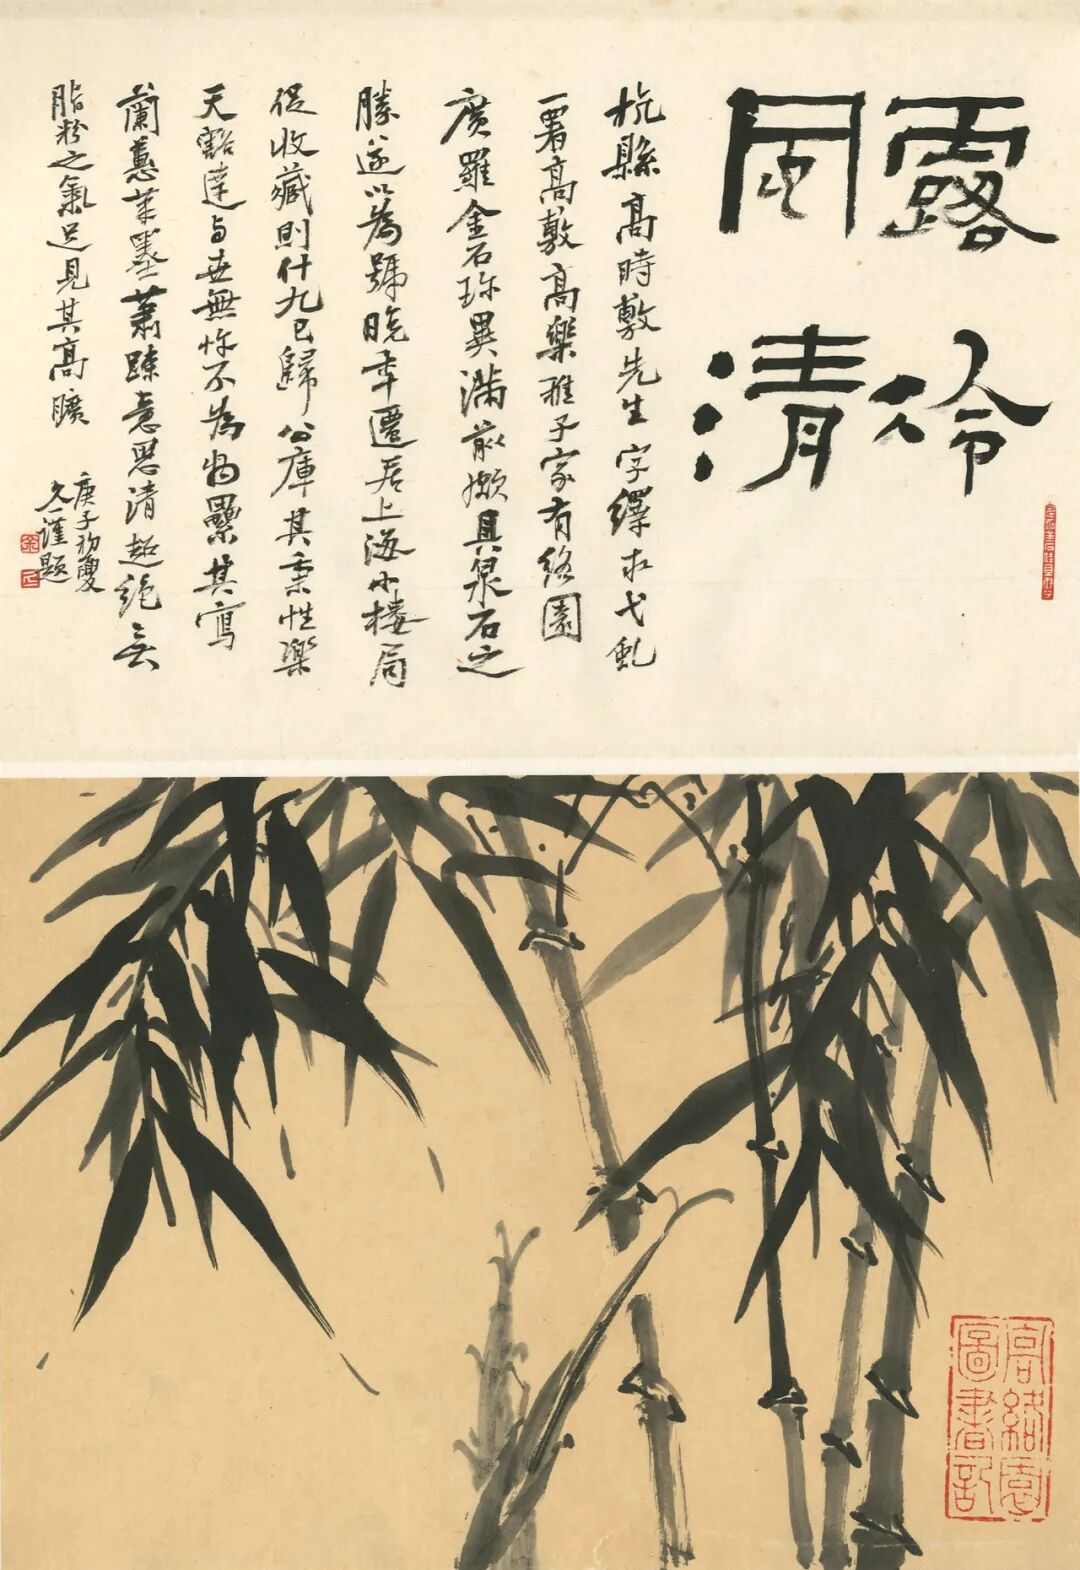 露冷
風清
杭縣高時敷先生字繹求弋虬
一署高敷高樂雅子家有絡園
廣羅金石珎異滿前頗具泉石之
勝遂以為號晚年遷居上海小樓局
促收藏則什九已歸公庫其秉性樂
天豁達与世無忤不為物累其寫
蘭蕙筆墨蕭疎意思清超絶无
脂粉之氣足見其高曠
庚子初夏
謹題
高絡園
圖書記